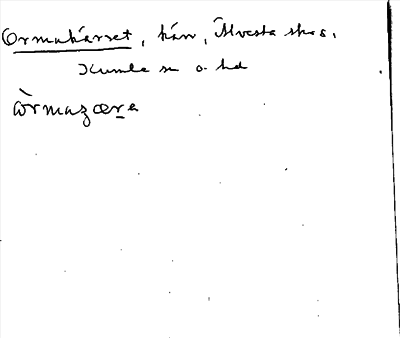 Ormakärret, kärr, Älvesta skog.
Kumla sn o. hd
òrmazære